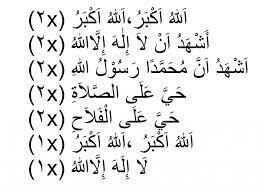 اَللهُ اَكْبَرُ، اَللهُ اَكْبَرُ (٢x)
أَشْهَدُ اَنْ لاَ إِلٰهَ إِلَّااللهُ (٢x)
اَشْهَدُ اَنَّ مُحَمَّدًا رَسُوْلُ اللهِ (٢x)
حَيَّ عَلَى الصَّلاَةِ (٢x)
حَيَّ عَلَى الْفَلاَحِ (٢x)
اَللهُ اَكْبَرُ ،اَللهُ اَكْبَرُ (١x)
لَا إِلَهَ إِلَّااللهُ (١x)